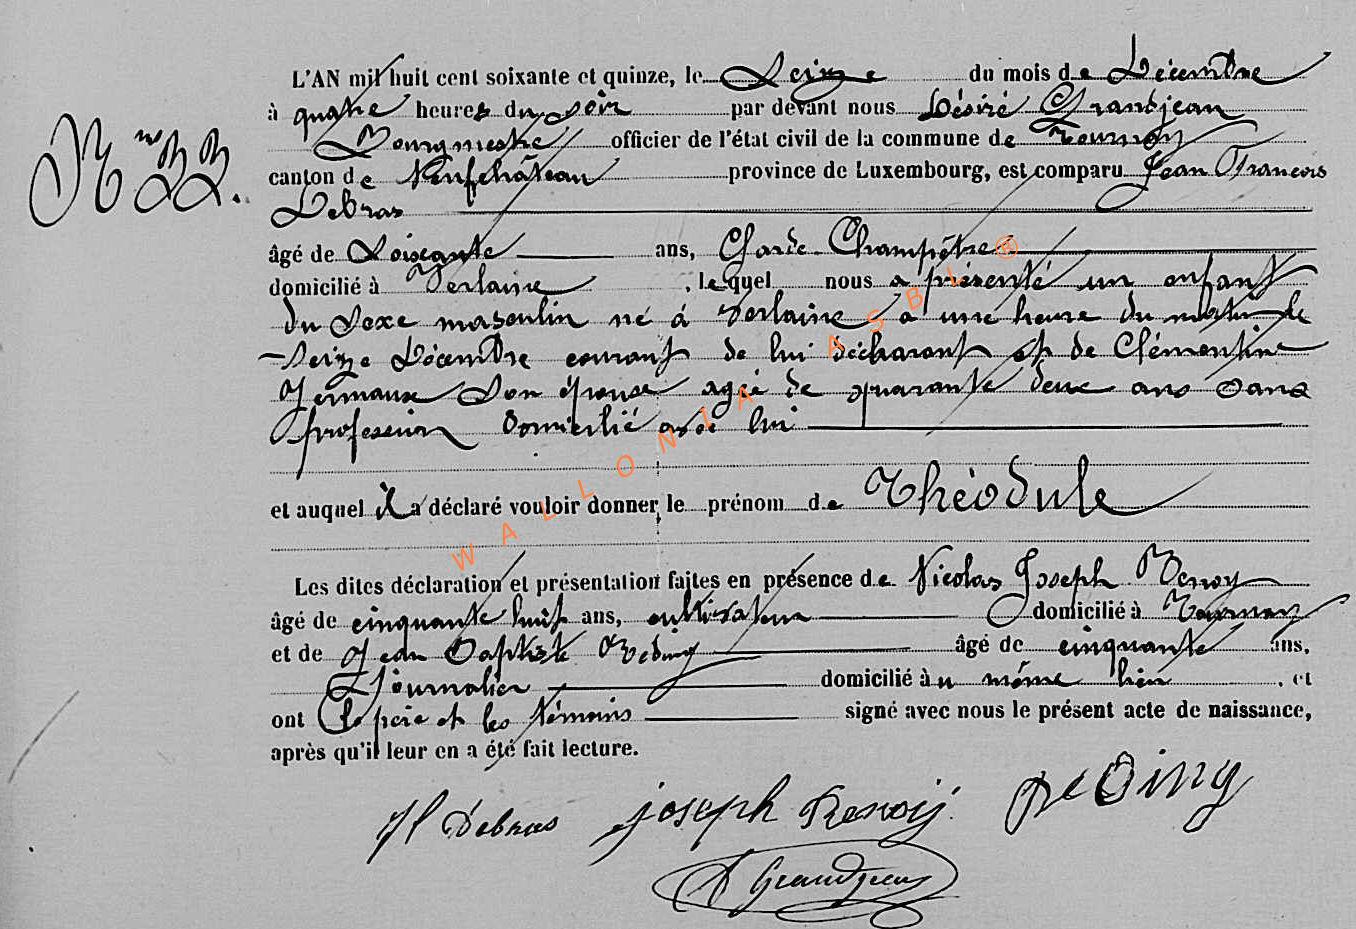 L'AN mil huit cent soixante et quinze, le Seize du mois de Décembre
à quatre heures du soir par devant nous Désiré Grandjean
Bourgmestre officier de l'état civil de la commune de Tournay
N.º 22.
canton de Neufchâteau province de Luxembourg, est comparu Jean François
Debras
âgé de Soixante ans, Garde Champêtre
domicilié à Verlaine, lequel nous a présenté un enfant
du Sexe masculin né à Verlaine à une heure du matin le
Seize Décembre courant de lui déclarant et de Clémentine
Germaux Son épouse agée de quarante deux ans Sans
profession Domicilié avec lui
et auquel il a déclaré vouloir donner le prénom de Théodule
Les dites déclaration et présentation faites en présence de Nicolas Joseph Renoy
âgé de cinquante huit ans, cultivateur domicilié à Tournay
et de Jean Baptiste Reding âgé de cinquante ans,
Journalier domicilié au même lieu, et
ont le père et les témoins signé avec nous le présent acte de naissance,
après qu'il leur en a été fait lecture.
Debras joseph Renoij ReDing
D Grandjean
WALLONIA ASBL ®